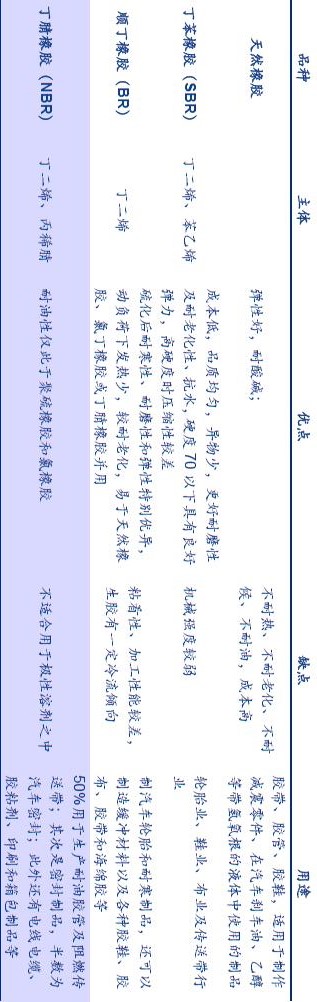 品种
主体
优点
缺点
用途
天然橡胶
弹性好，耐酸碱；
不耐热、不耐老化、不耐
候、不耐油，成本高
胶带、胶管、胶鞋，适用于制作
减震零件、在汽车刹车油、乙醇
等带氢氧根的液体中使用的制品
丁苯橡胶（SBR）
丁二烯、苯乙烯
成本低，品质均匀，异物少，更好耐磨性
及耐老化性、抗水，硬度 70 以下具有良好
弹力，高硬度时压缩性较差
机械强度较弱
轮胎业、鞋业、布业及传送带行
业
顺丁橡胶（BR）
丁二烯
硫化后耐寒性、耐磨性和弹性特别优异，
动负荷下发热少，较耐老化，易于天然橡
胶、氯丁橡胶或丁腈橡胶并用
粘着性、加工性能较差，
生胶有一定冷流倾向
制汽车轮胎和耐寒制品，还可以
制造缓冲材料以及各种胶鞋、胶
布、胶带和海绵胶等
丁腈橡胶（NBR）
丁二烯、丙稀腈
耐油性仅此于聚硫橡胶和氟橡胶
不适合用于极性溶剂之中
50%用于生产耐油胶管及阻燃传
送带；其次是密封制品，半数为
汽车密封；此外还有电线电缆、
胶粘剂、印刷和箱包制品等